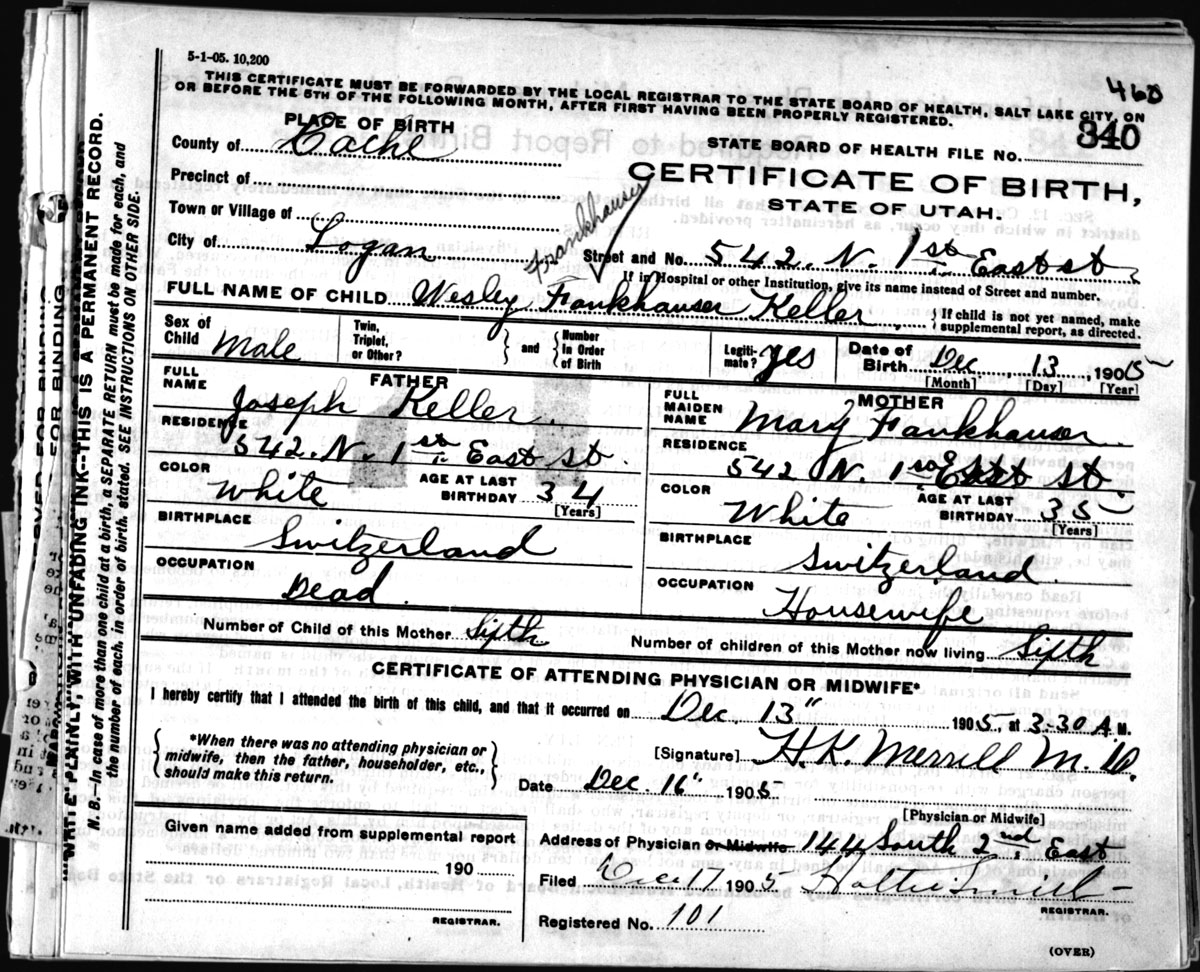 5-1-05. 10,200
460
THIS CERTIFICATE MUST BE FORWARDED BY THE LOCAL REGISTRAR TO THE STATE BOARD OF HEALTH, SALT LAKE CITY, ON
OR BEFORE THE 5TH OF THE FOLLOWING MONTH, AFTER FIRST HAVING BEEN PROPERLY REGISTERED.
PLACE OF BIRTH
STATE BOARD OF HEALTH FILE NO. 340
County of Cache
CERTIFICATE OF BIRTH,
STATE OF UTAH.
Precinct of
Town or Village of
Frankhauser
City of Logan
Street and No. 542. N. 1st East st
If in Hospital or other Institution, give its name instead of Street and number.
FULL NAME OF CHILD Wesley Fankhauser Keller
If child is not yet named, make supplemental report, as directed.
Sex of Child Male
Twin, Triplet, or Other? and Number In Order of Birth
Legitimate? yes
Date of Birth Dec 13, 1905
[Month] [Day] [Year]
FATHER
FULL NAME Joseph Keller
RESIDENCE 542. N. 1st East st.
COLOR White
AGE AT LAST BIRTHDAY 34
[Years]
BIRTHPLACE Switzerland
OCCUPATION Dead.
MOTHER
FULL MAIDEN NAME Mary Fankhauser
RESIDENCE 542 N. 1st East st.
COLOR White
AGE AT LAST BIRTHDAY 35
[Years]
BIRTHPLACE Switzerland.
OCCUPATION Housewife
Number of Child of this Mother Sifth
Number of children of this Mother now living Sifth
CERTIFICATE OF ATTENDING PHYSICIAN OR MIDWIFE*
I hereby certify that I attended the birth of this child, and that it occurred on Dec. 13" 1905, at 3.30 A M.
*When there was no attending physician or
midwife, then the father, householder, etc.,
should make this return.
[Signature] H. K. Merrill M. D.
Date Dec. 16" 1905.
[Physician or Midwife]
Given name added from supplemental report
190
REGISTRAR.
Address of Physician or Midwife 144 South 2nd East
Filed Dec 17 1905
REGISTRAR.
Registered No. 101
(OVER)
WRITE PLAINLY, WITH UNFADING INK--THIS IS A PERMANENT RECORD.
N. B.—In case of more than one child at a birth, a SEPARATE RETURN must be made for each, and
the number of each, in order of birth, stated. SEE INSTRUCTIONS ON OTHER SIDE.